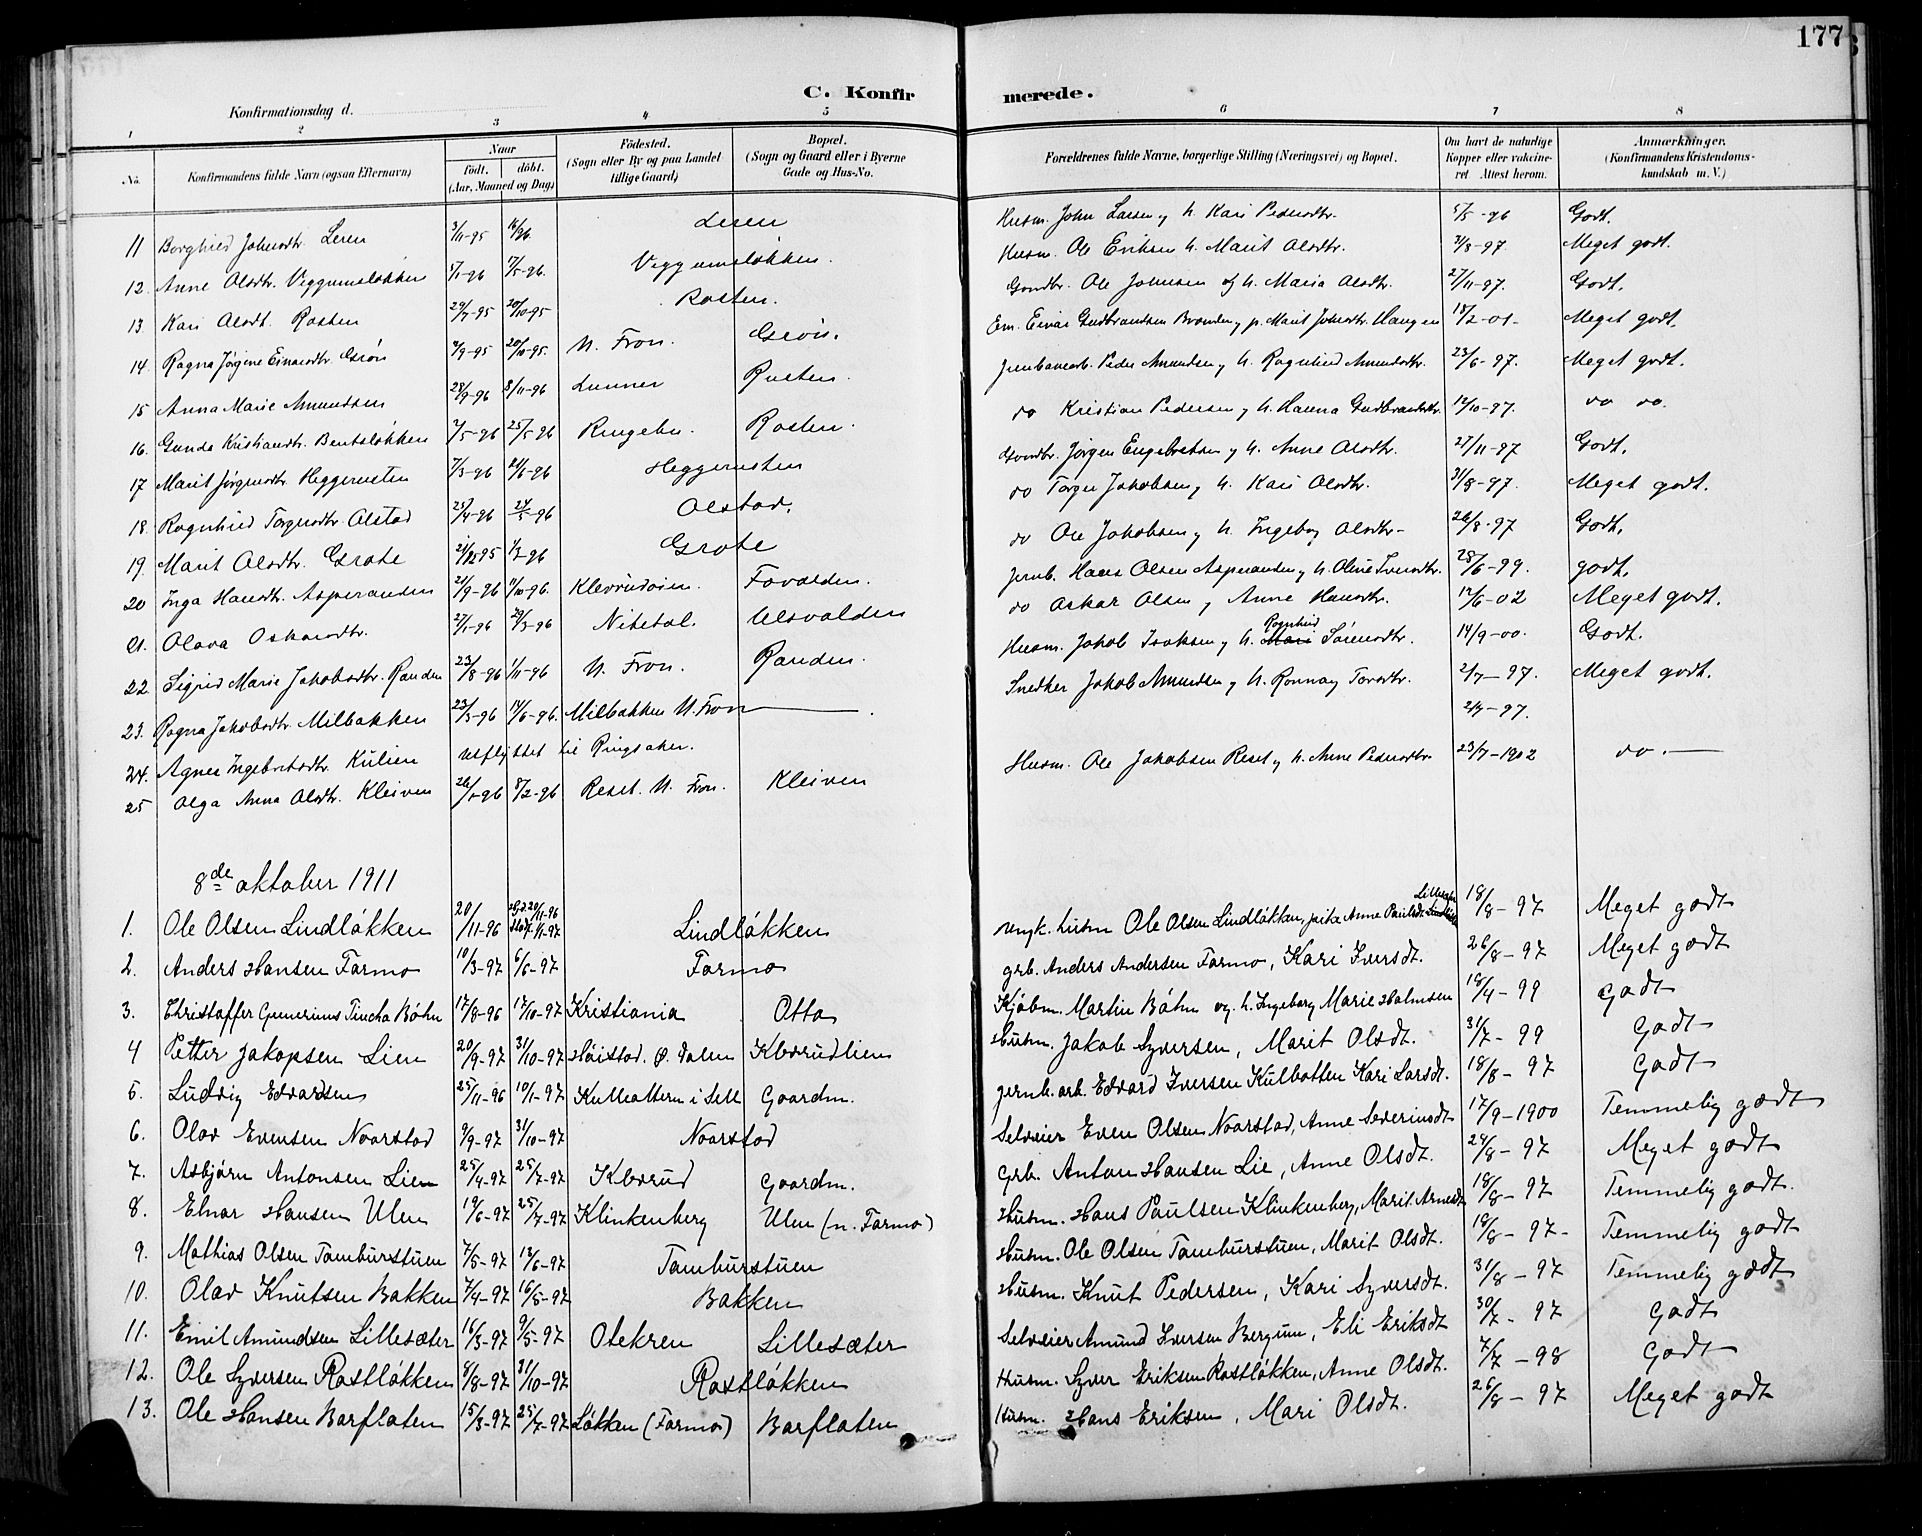 177
C. Konfirmerede.
Konfirmationsdag d.
1 2 3 4 5 6 7 8
No. Konfirmandens fulde Navn (ogsaa Efternavn) Naar født. døbt. (Aar, Maaned og Dag) Fødested. (Sogn eller By og paa Landet tillige Gaard) Bopæl. (Sogn og Gaard eller i Byerne Gade og Hus-No. Forældrenes fulde Navne, borgerlige Stilling (Næringsvei) og Bopæl. Om havt de naturlige Kopper eller vakcineret Attest herom. Anmærkninger. (Konfirmandens Kristendomskundskab m. V.)
11 Borghild Johnsdtr. Leren 3/11-95 16/2-96 Leren Husm. John Larsen og h. Kari Pedersdtr. 5/5-96 Godt.
12. Anne Olsdtr. Veggumsløkken 5/1-96 17/5-96. Veggumsløkken. Husm. Ole Eriksen h. Marit Olsdtr. 31/8-97. Meget godt.
13. Kari Olsdt. Rosten 29/7-95 20/10-95 Rosten. Gaardbr. Ole Johnsen og h. Maria Olsdtr. 27/11-97. Godt.
14. Ragna Jørgine Einarsdtr. Grøn 4/9-95 20/10-95. N. Fron. Grøn. Em. Einar Gudbrandsen Brenden og p. Marit Johnsdtr. Haugen 18/2-01- Meget godt.
15 Anna Marie Amundsen 28/9-96 8/11-96 Lunner Rusten. Jernbanearb. Peder Amundsen og h. Ragnhild Amundsdtr. 23/6-97. Meget godt.
16. Gunda Kristiansdtr. Bentsløkken 7/5-96 25/5-96 Ringebu. Rosten. do Kristian Pedersen og h. Hanna Gudbrandsdtr. 12/10-97. do do.
17 Marit Jørgensdtr. Heggerusten 7/3-96 21/6-96 Heggerusten Gaardbr. Jørgen Engebretsen og h. Anne Olsdtr. 27/11-97 Godt.
18. Ragnhild Torgersdtr. Olstad 25/4-96 24/5-96 Olstad. do Torger Jakobsen og h. Kari Olsdtr. 31/8-97. Meget godt.
19. Marit Olsdtr. Grote 21/12 95 1/3-96 Grote do Ole Jakobsen og h. Ingebor Olsdtr- 26/8-97 Godt.
20 Inga Hansdtr. Asperanden 21/9-96 11/10-96. Klevrudoien. Fovolden. Jernb. Hans Olsen Asperanden og h. Oline Iversdtr. 28/6-99. godt.
21. Olava Oskarsdtr. 27/1-96 29/3-96 Nitetal. Ulsvolden do Oskar Olsen og Anne Hansdtr. 12/6-02 Meget godt.
22 Sigrid Marie Jakobsdtr. Randen 23/8-96 1/11-96 N. Fron. Randen. Husm. Jakob Isaksen og h. Mari Ragnhild Sørensdtr. 14/9-00. Godt.
23. Ragna Jakobsdtr Milbakken 23/3-96 14/6-96. Milbakken N. Fron Snedker Jakob Amundsen og h. Rønnaug Torsdtr. 2/7-97. Meget godt.
24. Agnes Ingebretsdtr. Kulien utflyttet til Ringsaker. 2/7-97.
25 Olga Anna Olsdtr. Kleiven 26/1-96 8/2-96 Reset. N. Fron. Kleiven Husm. Ole Jakobsen Reset og h. Anne Pedersdtr 23/7-1902 do.
8de oktober 1911
1. Ole Olsen Lindløkken 20/11-96 hd. 20/11-96 stadf. 1/1-97 Lindløkken ungk. husm Ole Olsen Lindløkken, pike Anne Paulsdt. 18/8-97 Meget godt
2. Anders Hansen Formo 10/3-97 6/6-97 Formo grb. Anders Andersen Formo, Kari Iversdt. 26/8-97 Meget godt
3. Christoffer Gunerius Tincha Bøhn 17/8-96 17/10-97 Kristiania Otta Kjøbm. Martin Bøhn og h. Ingeborg Marie Holmsen 18/4-99 Godt
4 Petter Jakopsen Lien 20/9-97 31/10-97 Høistad. Ø. dalen Kleverudlien Husm. Jakob Syversen, Marit Olsdt. 31/7-99 Godt
5. Ludvig Edvardsen 25/11-96 10/1-97 Kulbotten i Sell Gaardm. Jernb. arb. Edvard Iversen Kulbotten Kari Larsdt. 18/8-97 Godt
6. Olav Evensen Noorstad 9/9-97 31/10-97 Noorstad Selveier Even Olsen Noorstad, Anne Severinsdt 17/9-1900 Temmelig godt
7. Asbjørn Antonsen Lien 25/4-97 25/7-97 Kleverud Gaardm. Grb. Anton Hansen Lie, Anne Olsdt. 24/8-97 Meget godt
8. Elnar Hansen Ulen 19/6-97 25/7-97 Klinkenberg Ulen (n. Formo) Husm. Hans Paulsen Klinkenberg, Marit Arnesdt 18/8-97 Temmelig godt.
9. Mathias Olsen Tamburstuen 7/5-97 13/6-97 Tamburstuen Husm. Ole Olsen Tamburstuen, Marit Olsdt. 18/8-97- Temmelig godt
10. Olav Knutsen Bakken 7/4-97 16/5-97 Bakken Husm. Knut Pedersen, Kari Syversdt. 31/8-97 Temmelig godt
11. Emil Amundsen Lillesæter 16/3-97 9/5-97 Otekren Lillesæter Selveier Amund Iversen Bergum, Eli Eriksdt 30/7-97 Godt
12. Ole Syversen Rostløkken 8/8-97 31/10-97 Rostløkken Husm. Syver Eriksen Rostløkken, Anne Olsdt. 7/7-98 Godt
13. Ole Hansen Barflaten 15/3-97 25/7-97 Løkken (Formo) Barflaten Husm. Hans Eriksen, Mari Olsdt. 26/8-97 Meget godt